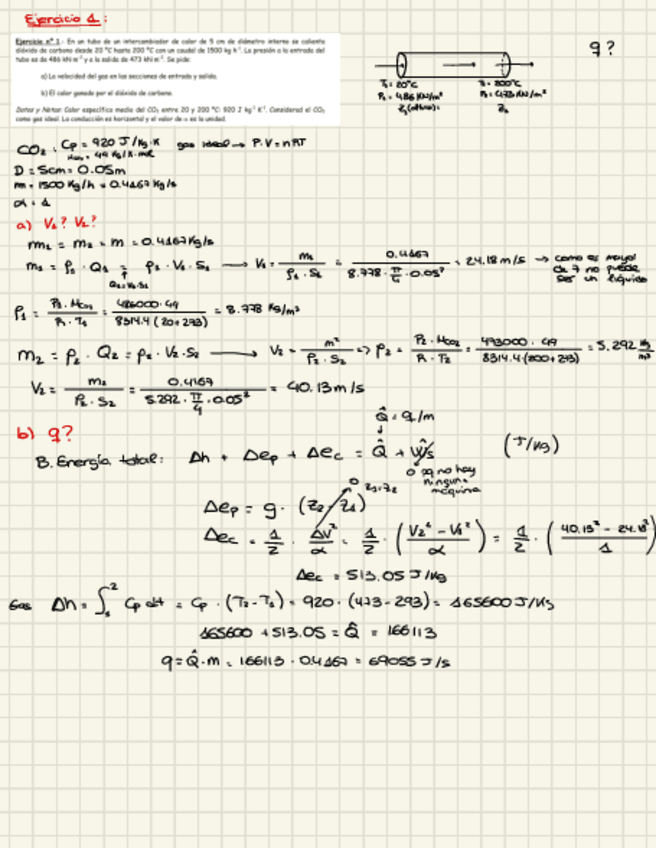 Ejercicio 1:
Ejercicio nº 1.- En un tubo de un intercambiador de calor de 5 cm de diámetro interno se calienta
dióxido de carbono desde 20 ºC hasta 200 ºC con un caudal de 1500 kg h⁻¹. La presión a la entrada del
tubo es de 486 kN m⁻² y a la salida de 473 kN m⁻². Se pide:
a) La velocidad del gas en las secciones de entrada y salida.
b) El calor ganado por el dióxido de carbono.
Datos y Notas: Calor específico medio del CO₂ entre 20 y 200 ºC: 920 J kg⁻¹ K⁻¹. Considerad el CO₂
como gas ideal. La conducción es horizontal y el valor de α es la unidad.
q?
T₁ = 20ºC T₂ = 200ºC
P₁ = 486 kN/m² P₂ = 473 kN/m²
Z₁ (altura)= Z₂
CO₂: Cp = 920 J/kg·K gas ideal → P·V = nRT
D = 5cm = 0.05m
m = 1500 kg/h = 0.4167 kg/s
α = 1
a) V₁? V₂?
m₁ = m₂ = m = 0.4167 kg/s
m₁ = ρ₁ · Q₁ = ρ₁ · V₁ · S₁ → V₁ = m₁ / ρ₁ · S₁ = 0.4167 / 8.778 · π/4 · 0.05² = 24.18 m/s → como es mayor de 7 no puede ser un líquido
Q₁=V₁·S₁
ρ₁ = P₁ · M_CO₂ / R · T₁ = 486000 · 44 / 8314.4 (20+273) = 8.778 kg/m³
m₂ = ρ₂ · Q₂ = ρ₂ · V₂ · S₂ → V₂ = m² / ρ₂ · S₂ => ρ₂ = P₂ · M_CO₂ / R · T₂ = 473000 · 44 / 8314.4 (200+273) = 5.292 kg/m³
V₂ = m₂ / ρ₂ · S₂ = 0.4167 / 5.292 · π/4 · 0.05² = 40.13 m/s
Q̂ = q/m
b) q?
B. Energía total: Δh + Δep + Δec = Q̂ + Ŵs (J/kg)
0 pq no hay
ninguna
máquina
0 z₁=z₂
Δep = g · (z₂ - z₁)
Δec = 1/2 · ΔV²/α = 1/2 · (V₂² - V₁² / α) = 1/2 · (40.13² - 24.18² / 1)
Δec = 513.05 J/kg
Gas Δh = ∫₁² Cp dt = Cp · (T₂-T₁) = 920 · (473-293) = 165600 J/kg
165600 + 513.05 = Q̂ = 166113
q = Q̂·m = 166113 · 0.4167 = 69055 J/s